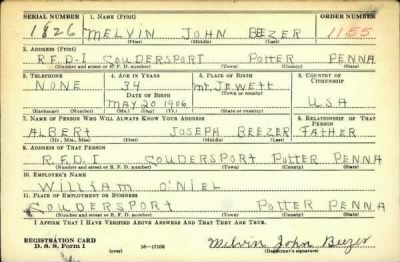 SERIAL NUMBER 1. NAME (Print) ORDER NUMBER
1826 MELVIN JOHN BEEZER 1155
(First) (Middle) (Last)
2. ADDRESS (Print)
R.F.D-I COUDERSPORT POTTER PENNA
(Number and street or R. F. D. number) (Town) (County) (State)
3. TELEPHONE 4. AGE IN YEARS 5. PLACE OF BIRTH 6. COUNTRY OF CITIZENSHIP
NONE 34 MT. JEWETT
DATE OF BIRTH (Town or county)
MAY 20 1906 PENNA USA
(Exchange) (Number) (Mo.) (Day) (Yr.) (State or country)
7. NAME OF PERSON WHO WILL ALWAYS KNOW YOUR ADDRESS 8. RELATIONSHIP OF THAT PERSON
ALBERT JOSEPH BEEZER FATHER
(Mr., Mrs., Miss) (First) (Middle) (Last)
9. ADDRESS OF THAT PERSON
R.F.D.I COUDERSPORT POTTER PENNA
(Number and street or R. F. D. number) (Town) (County) (State)
10. EMPLOYER'S NAME
WILLIAM O'NIEL
11. PLACE OF EMPLOYMENT OR BUSINESS
COUDERSPORT POTTER PENNA
(Number and street or R. F. D. number) (Town) (County) (State)
I AFFIRM THAT I HAVE VERIFIED ABOVE ANSWERS AND THAT THEY ARE TRUE.
REGISTRATION CARD
D. S. S. Form 1 (over) 16-17105 Melvin John Beezer
(Registrant's signature)